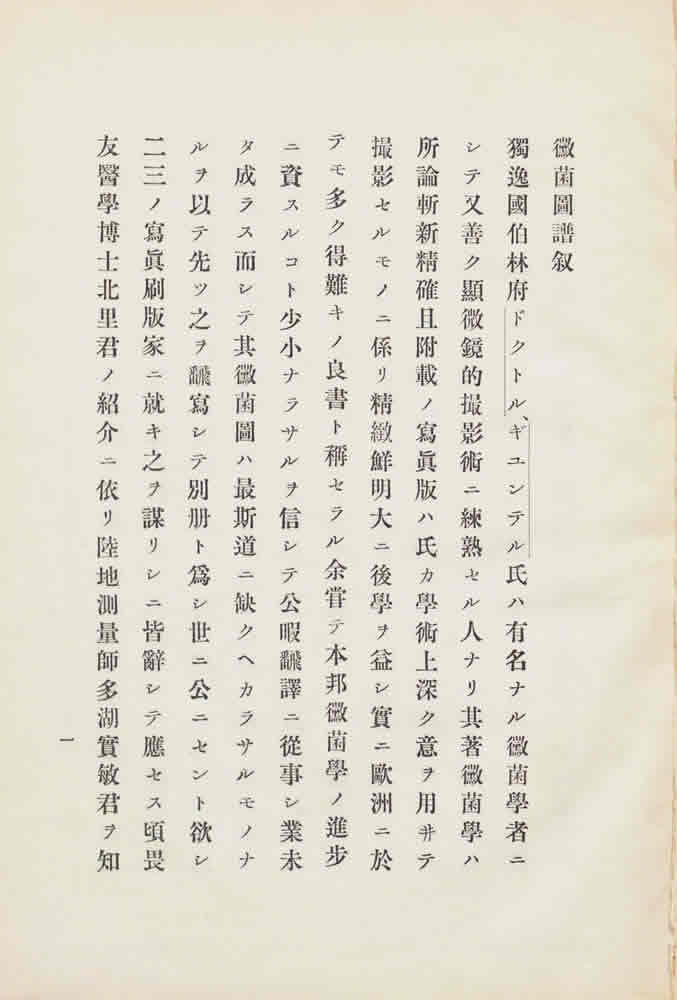 黴菌圖譜叙
獨逸國伯林府ドクトル、ギユンテル氏ハ有名ナル黴菌學者ニ
シテ又善ク顯微鏡的撮影術ニ練熟セル人ナリ其著黴菌學ハ
所論斬新精確且附載ノ寫眞版ハ氏カ學術上深ク意ヲ用井テ
撮影セルモノニ係リ精緻鮮明大ニ後學ヲ益シ實ニ歐洲ニ於
テモ多ク得難キノ良書ト稱セラル余甞テ本邦黴菌學ノ進步
ニ資スルコト少小ナラサルヲ信シテ公暇飜譯ニ從事シ業未
タ成ラス而シテ其黴菌圖ハ最斯道ニ缺クヘカラサルモノナ
ルヲ以テ先ツ之ヲ飜寫シテ別册ト爲シ世ニ公ニセント欲シ
二三ノ寫眞刷版家ニ就キ之ヲ謀リシニ皆辭シテ應セス頃畏
友醫學博士北里君ノ紹介ニ依リ陸地測量師多湖實敏君ヲ知
一